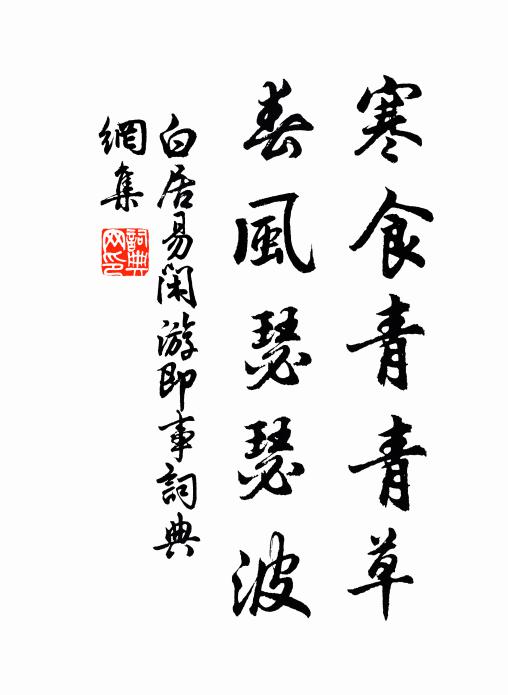 寒食青青草
春風瑟瑟波
白居易閑游即事詞典
網集
詞典網印